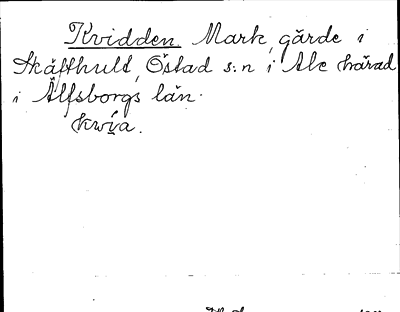 Kvidden, Mark, gärde i
Skäfthult, Östad s:n i Ale härad
i Älfsborgs län.
kwia.